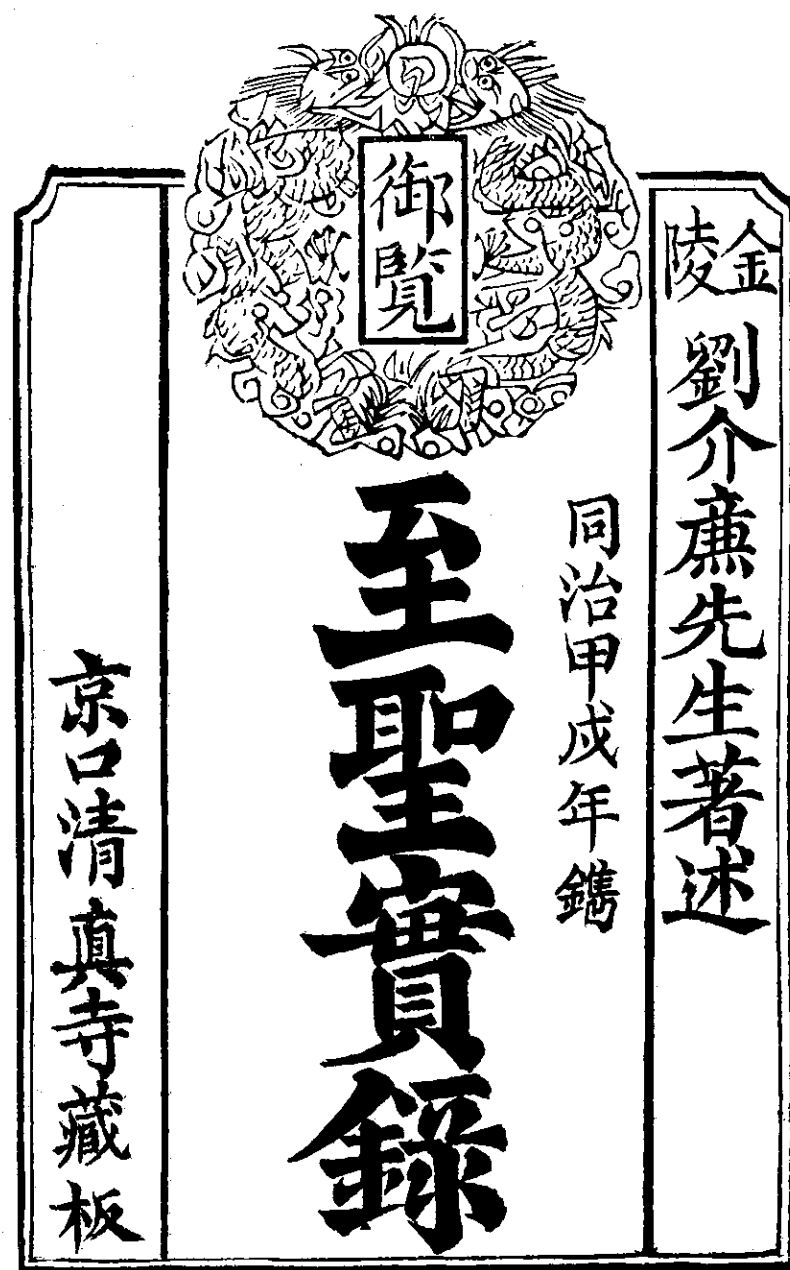 御覽
金陵
劉介廉先生著述
同治甲戌年鐫
至聖實錄
京口清真寺藏板